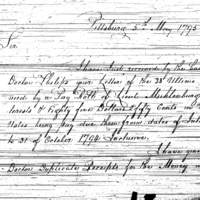 Pittsburg 5th May 1795
Sir
I have just received by the hand
Doctor Phelps your Letter of the 3d Ultimo
ned by a Pay Roll of Lieut Muhlenburg
& Eighty four Dollars & fifty Cents in
Notes being Pay due them from dates of
to 31 of October 1794 Inclusive.
I have given
Doctor Duplicate Receipts for the Money